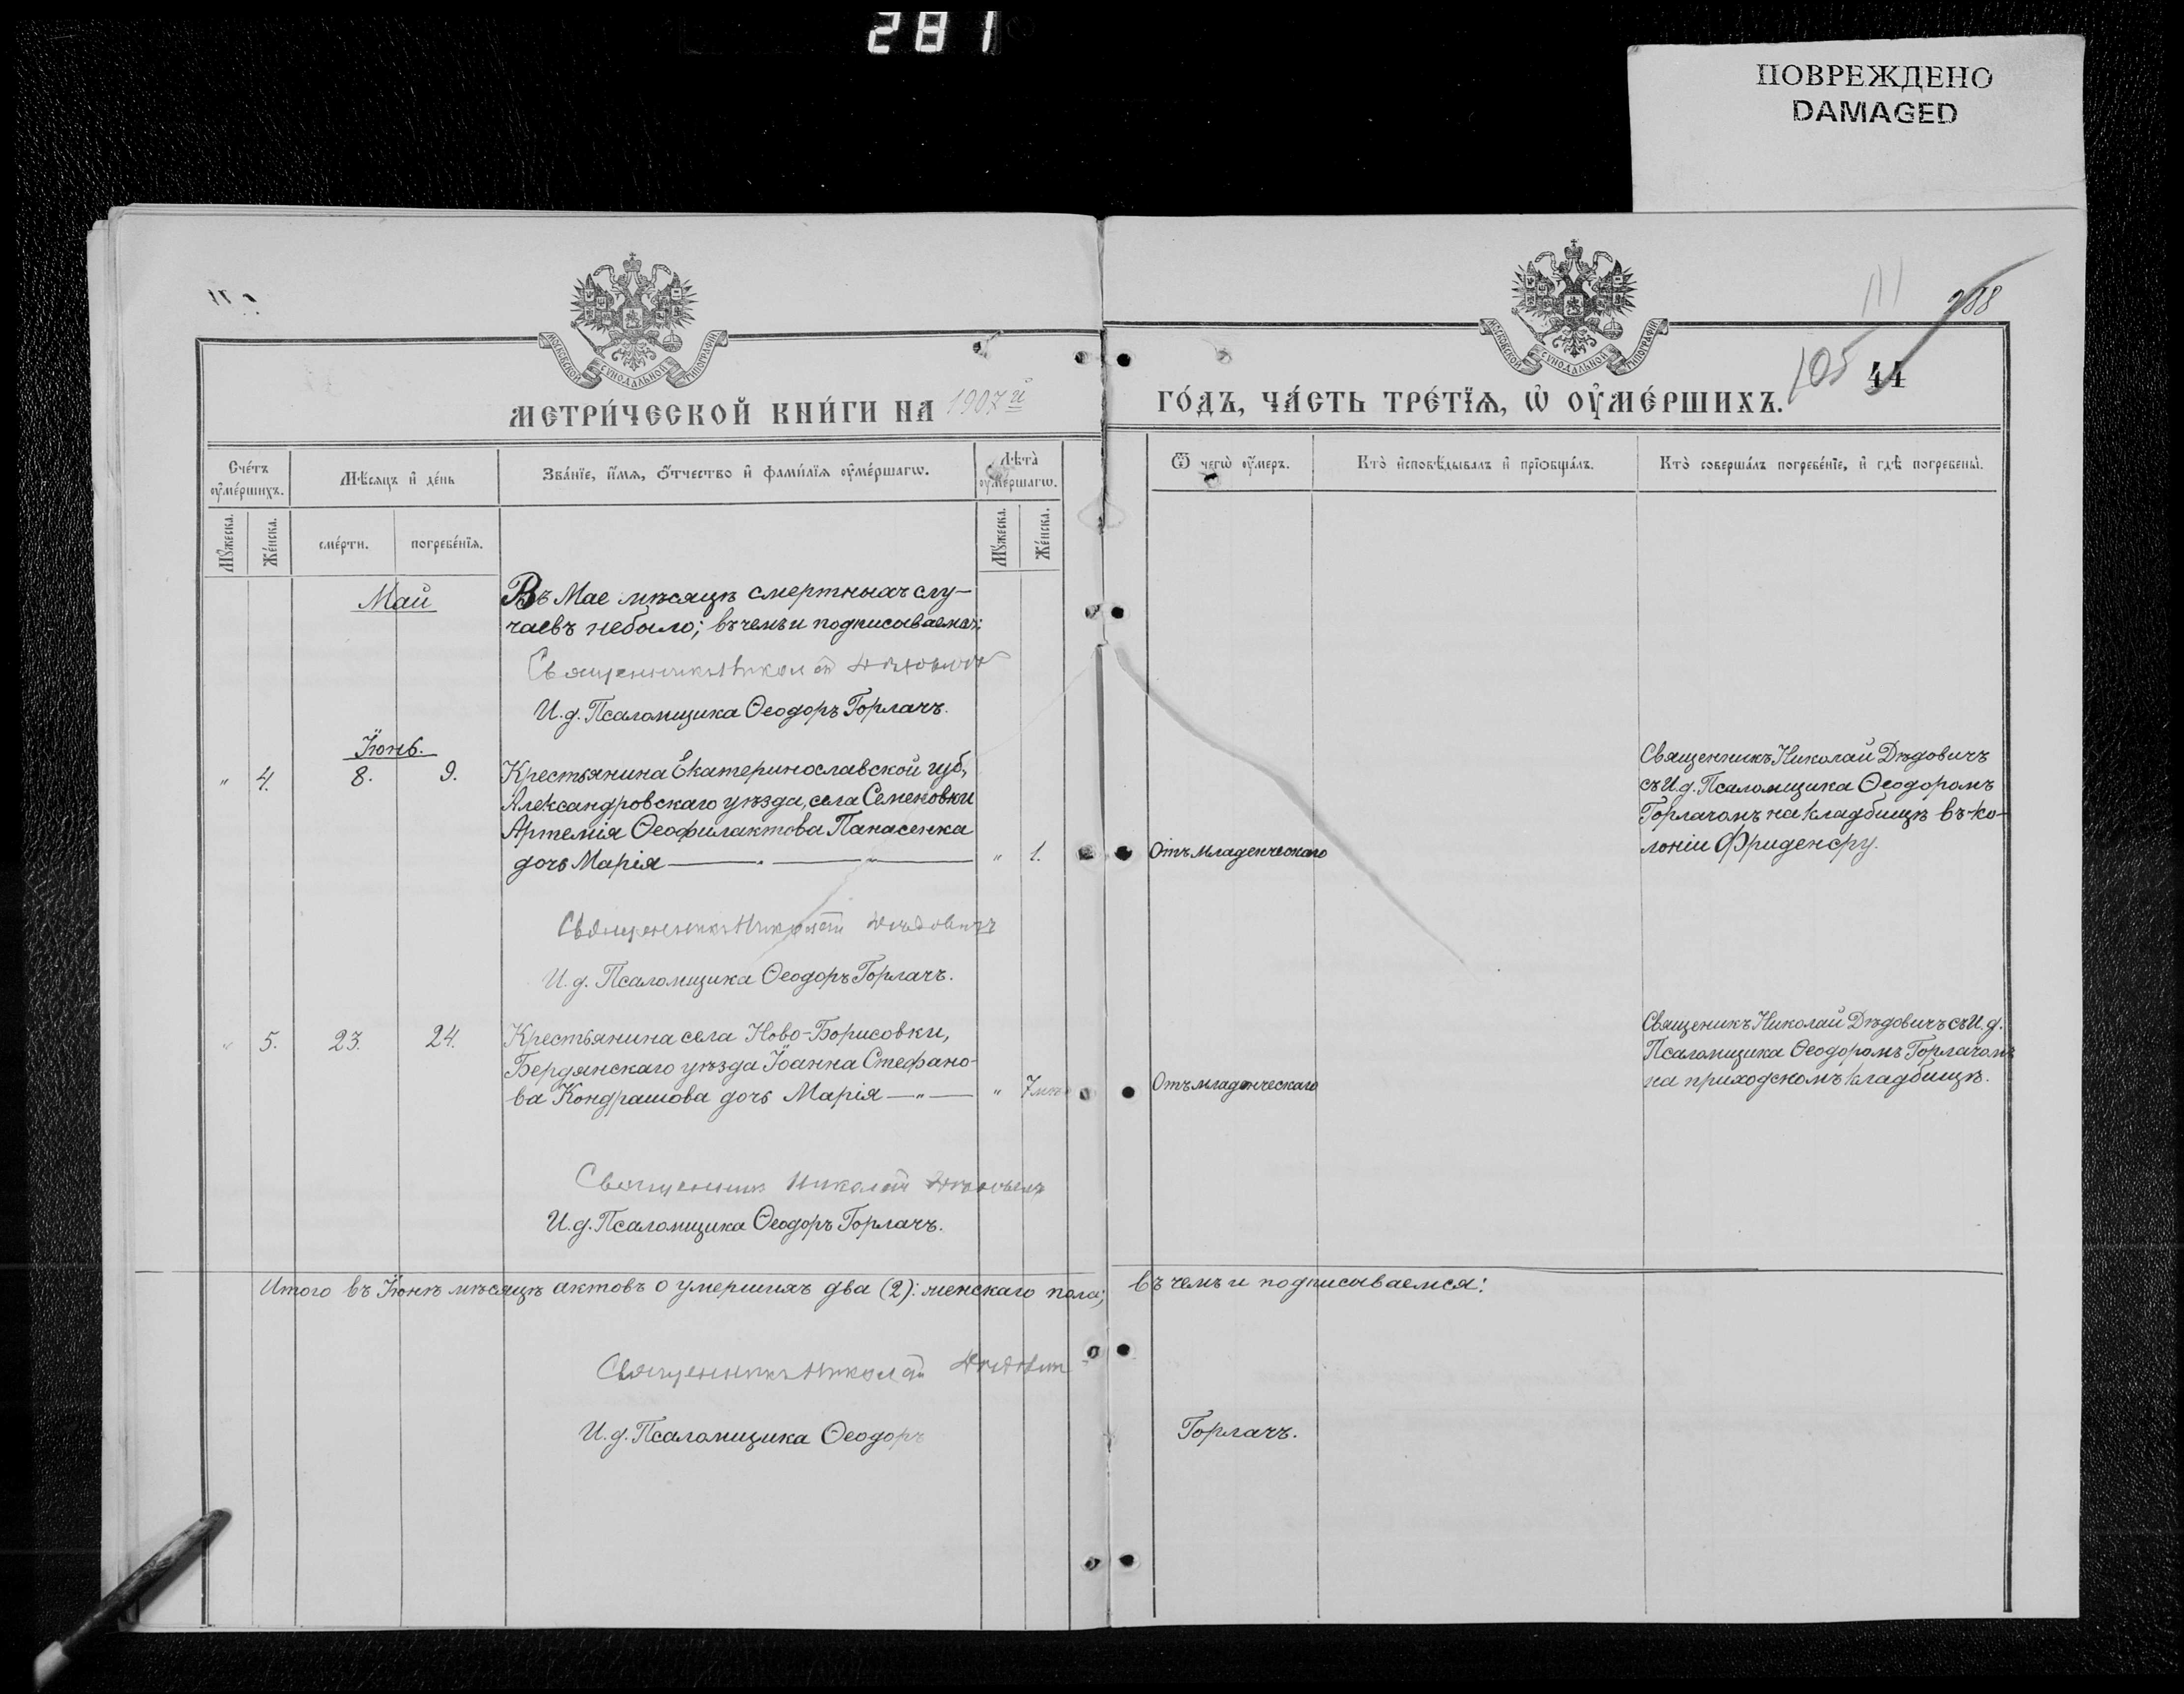 281
ПОВРЕЖДЕНО
DAMAGED
111
208
105
44
МОСКОВСКОЙ СѴНОДАЛЬНОЙ ТИПОГРАФІИ
МОСКОВСКОЙ СѴНОДАЛЬНОЙ ТИПОГРАФІИ
МЕТРИ́ЧЕСКОЙ КНИ́ГИ НА 1907й
ГО́ДЪ, ЧА́СТЬ ТРЕ́ТЇѦ, Ѡ҆ ОУ҆МЕ́РШИХЪ.
Сче́тъ оу҆ме́ршихъ.
Мѣ́сяцъ и҆ де́нь
Зва́нїе, и҆́мѧ, ѻ҆́тчество и҆ фами́лїѧ оу҆ме́ршагѡ.
Лѣта̀ оу҆ме́ршагѡ.
Ѿ чегѡ̀ оу҆́меръ.
Кто̀ и҆сповѣ́дывалъ и҆ прїѡбща́лъ.
Кто̀ соверша́лъ погребе́нїе, и҆ гдѣ̀ погребены̀.
Мꙋ́жеска.
Же́нска.
сме́рти.
погребе́нїѧ.
Мꙋ́жеска.
Же́нска.
Май
Въ Мае мѣсяцѣ смертныхъ слу-
чаевъ небыло; въ чемъ и подписываемся:
Священникъ Николай Дѣдовичъ
И. д. Псаломщика Ѳеодоръ Горлачъ.
Іюнь.
" 4. 8. 9. Крестьянина Екатеринославской губ,
Александровскаго уѣзда, села Семеновки
Артемія Ѳеофилактова Панасенка
дочь Марія " 1. Отъ младенческаго
Священникъ Николай Дѣдовичъ
съ И. д. Псаломщика Ѳеодоромъ
Горлачомъ на кладбищѣ въ ко-
лоніи Фриденсру.
Священникъ Николай Дѣдовичъ
И. д. Псаломщика Ѳеодоръ Горлачъ.
" 5. 23. 24. Крестьянина села Ново-Борисовки,
Бердянскаго уѣзда Іоанна Стефано-
ва Кондрашова дочь Марія — " — " 7 мѣ Отъ младенческаго
Священикъ Николай Дѣдовичъ съ И. д.
Псаломщика Ѳеодоромъ Горлачомъ
на приходскомъ кладбищѣ.
Священникъ Николай Дѣдовичъ
И. д. Псаломщика Ѳеодоръ Горлачъ.
Итого въ Іюнѣ мѣсяцѣ актовъ о умершихъ два (2): женскаго пола; въ чемъ и подписываемся:
Священникъ Николай Дѣдовичъ
И. д. Псаломщика Ѳеодоръ Горлачъ.